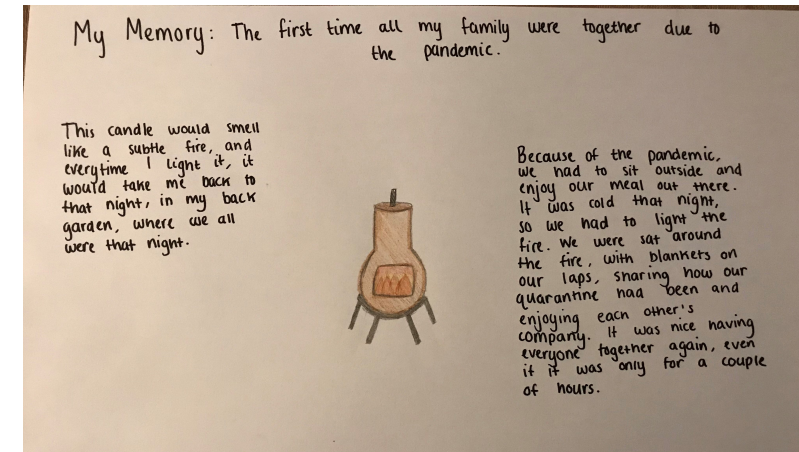 My Memory: The first time all my family were together due to
the pandemic.
This candle would smell
like a subtle fire, and
everytime I light it, it
would take me back to
that night, in my back
garden, where we all
were that night.
Because of the pandemic,
we had to sit outside and
enjoy our meal out there.
It was cold that night,
so we had to light the
fire. We were sat around
the fire, with blankets on
our laps, sharing how our
quarantine had been and
enjoying each other's
company. It was nice having
everyone together again, even
if it was only for a couple
of hours.